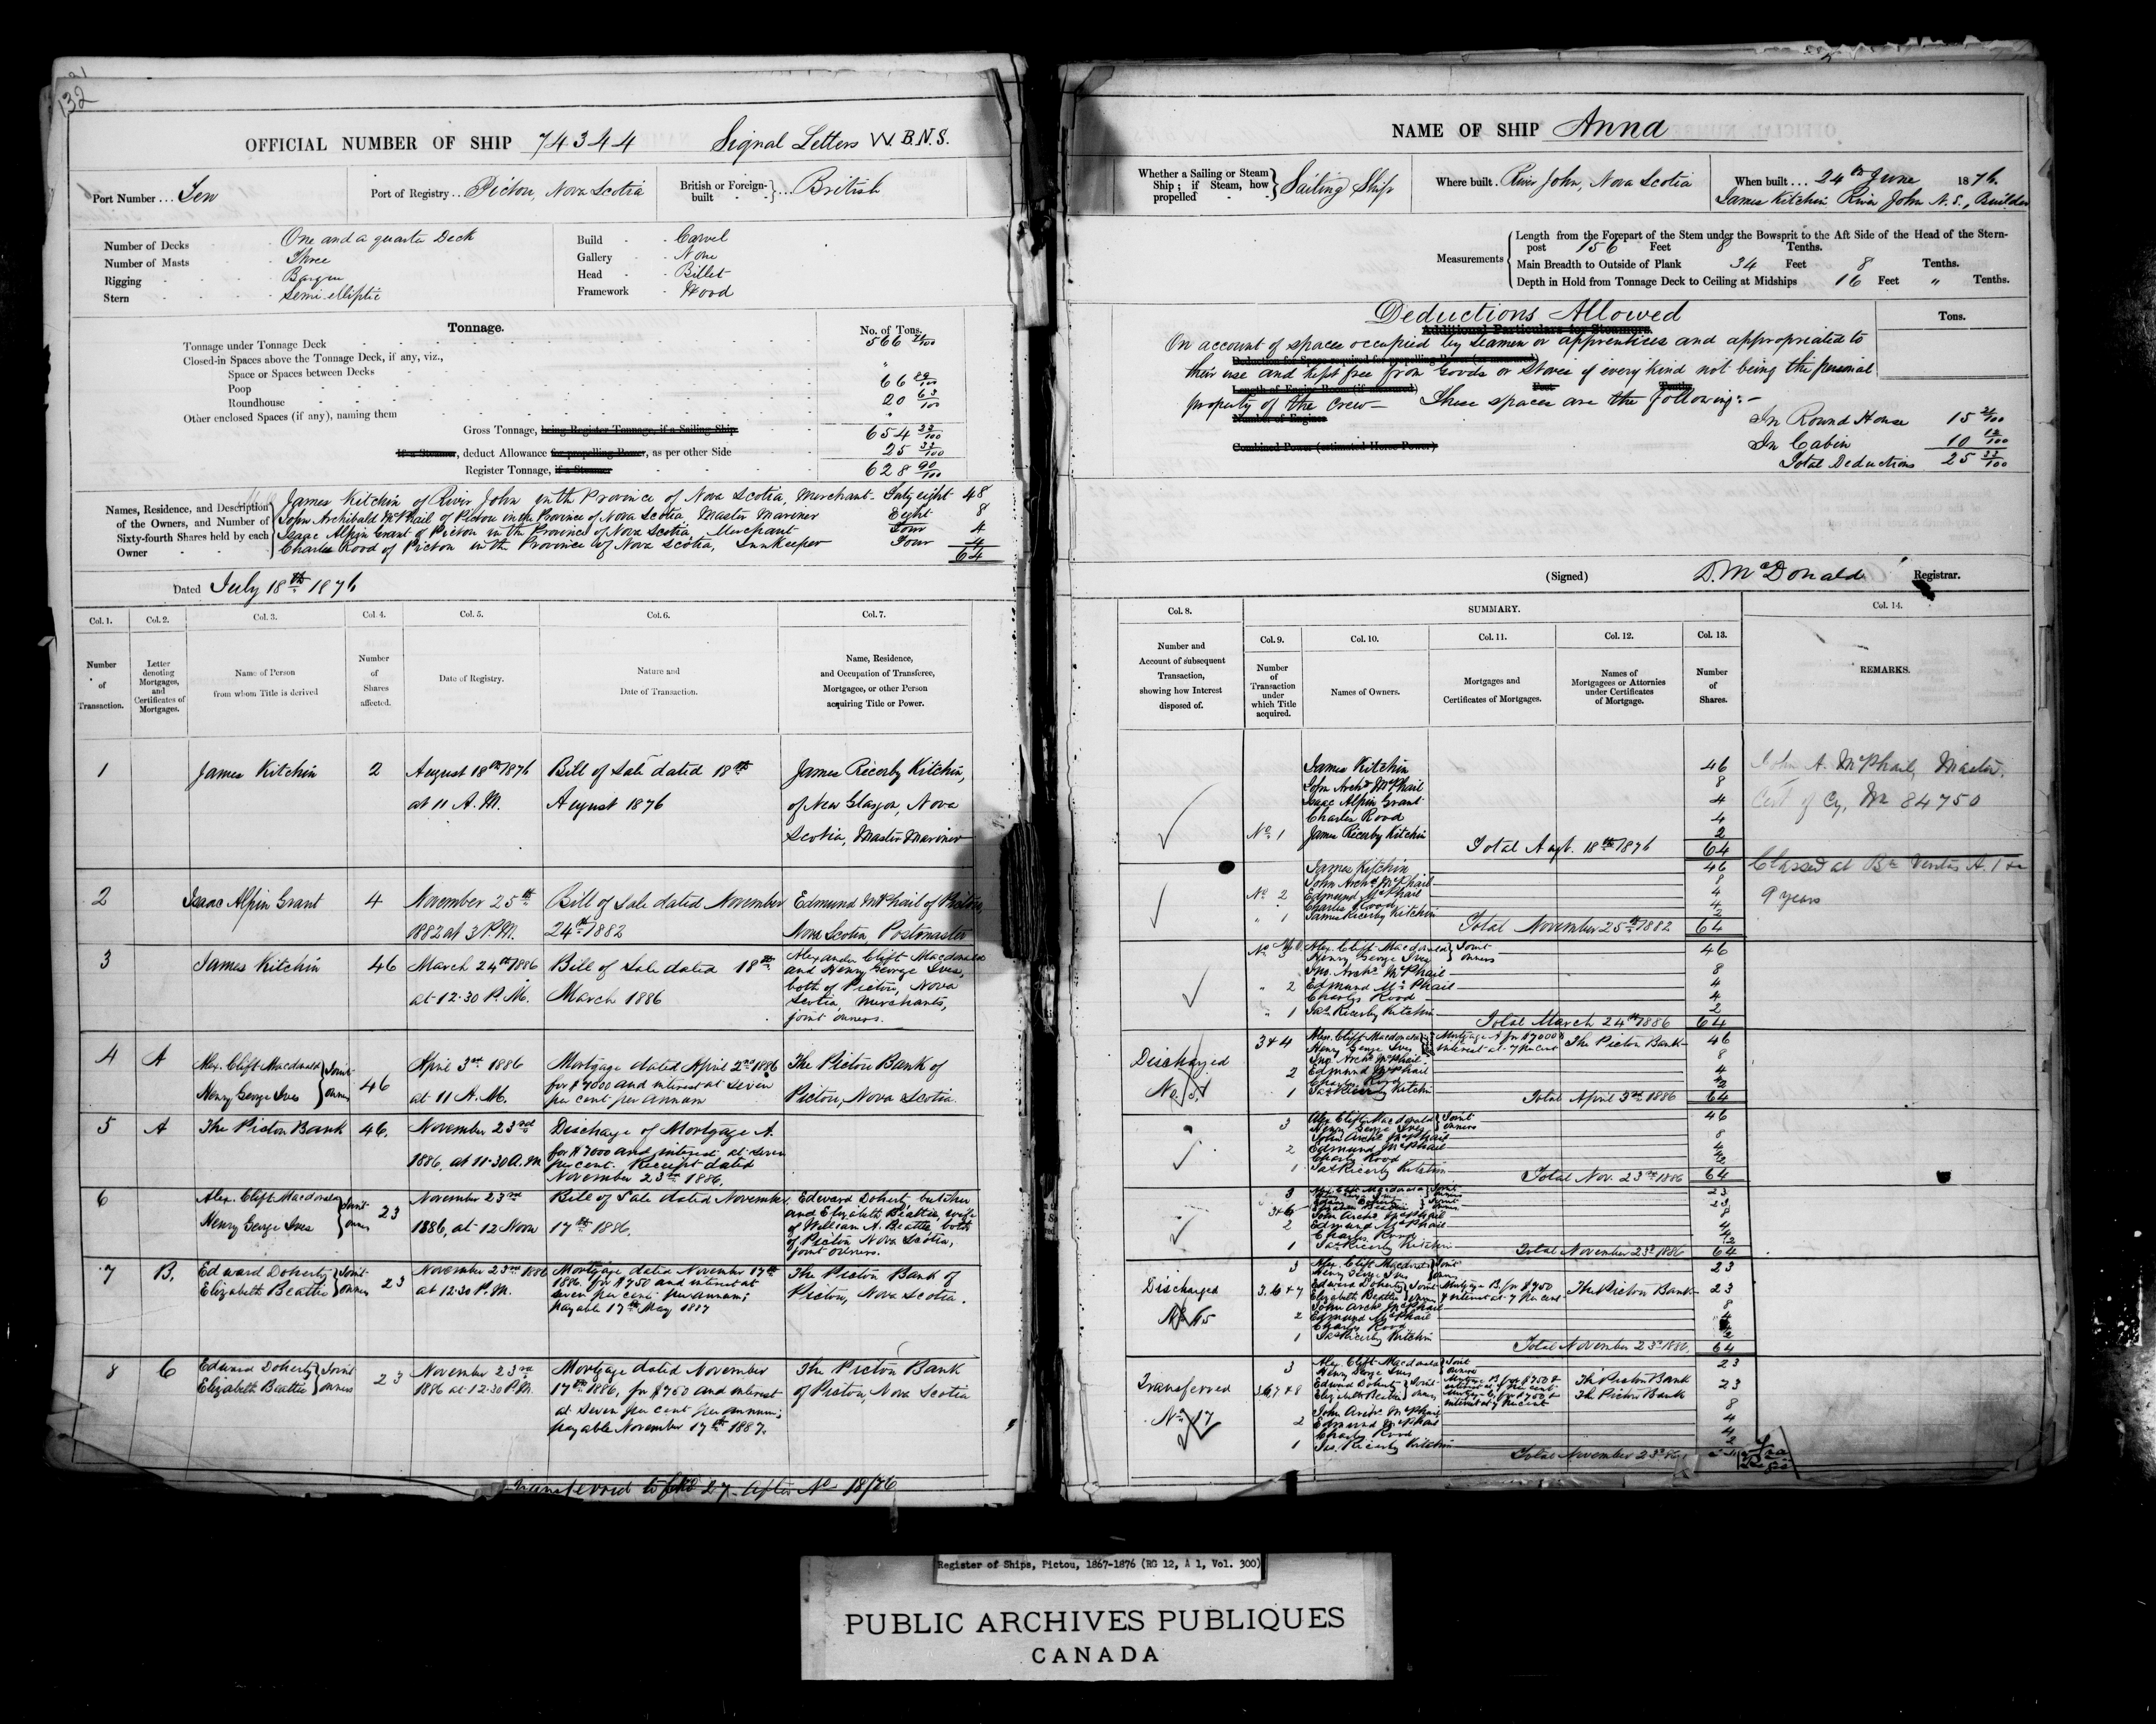 132
OFFICIAL NUMBER OF SHIP 74344 Signal Letters W.B.N.S.
Port Number ... Ten
Port of Registry ... Pictou, Nova Scotia
British or Foreign-built ... British
Number of Decks One and a quarter Deck
Number of Masts Three
Rigging Barque
Stern Semi-elliptic
Build Carvel
Gallery None
Head Billet
Framework Wood
Tonnage.
No. of Tons.
Tonnage under Tonnage Deck 566
Closed-in Spaces above the Tonnage Deck, if any, viz.,
Space or Spaces between Decks "
Poop 66 89/100
Roundhouse 20 63/100
Other enclosed Spaces (if any), naming them
Gross Tonnage, being Register Tonnage, if a Sailing Ship 654 33/100
If a Steamer, deduct Allowance for propelling Power, as per other Side 25 33/100
Register Tonnage, if a Steamer 628 90/100
Names, Residence, and Description of the Owners, and Number of Sixty-fourth Shares held by each Owner
James Kitchin of River John in the Province of Nova Scotia, Merchant - Forty eight 48
John Archibald McPhail of Pictou in the Province of Nova Scotia Master Mariner Eight 8
Isaac Alpin Grant of Pictou in the Province of Nova Scotia, Merchant Four 4
Charles Rood of Pictou in the Province of Nova Scotia, Innkeeper Four 4
64
Dated July 18th 1876
Col. 1. Col. 2. Col. 3. Col. 4. Col. 5. Col. 6. Col. 7.
Number of Transaction.
Letter denoting Mortgages, and Certificates of Mortgages.
Name of Person from whom Title is derived
Number of Shares affected.
Date of Registry.
Nature and Date of Transaction.
Name, Residence, and Occupation of Transferee, Mortgagee, or other Person acquiring Title or Power.
1 James Kitchin 2 August 18th 1876 Bill of Sale dated 18th James Ricerby Kitchin,
at 11 A.M. August 1876 of New Glasgow, Nova
Scotia, Master Mariner
2 Isaac Alpin Grant 4 November 25th Bill of Sale dated November Edmund McPhail of Pictou,
1882 at 3 P.M. 24th 1882 Nova Scotia Postmaster
3 James Kitchin 46 March 24th 1886 Bill of Sale dated 18th Alexander Clift Macdonald
and Henry George Ives,
at 12.30 P.M. March 1886 both of Pictou, Nova
Scotia, Merchants,
joint owners.
4 A Alex. Clift Macdonald Joint 46 April 3rd 1886 Mortgage dated April 2nd 1886 The Pictou Bank of
Henry George Ives owners at 11 A.M. for $7000 and interest at seven Pictou, Nova Scotia.
per cent per annum
5 A The Pictou Bank 46. November 23rd Discharge of Mortgage A.
1886, at 11.30 A.M. for $7000 and interest at seven
per cent. Receipt dated
November 23rd 1886.
6 Alex. Clift Macdonald Joint 23 November 23rd Bill of Sale dated November Edward Dohert, butcher
Henry George Ives owners 1886, at 12 Noon 17th 1886. and Elizabeth Beattie wife
of William A. Beattie both
of Pictou Nova Scotia,
joint owners.
7 B. Edward Doherty Joint 23 November 23rd 1886 Mortgage dated November 17th The Pictou Bank of
Elizabeth Beattie owners at 12.30 P.M. 1886, for $750 and interest at Pictou, Nova Scotia.
seven per cent per annum;
payable 17th May 1887
8 C Edward Doherty Joint 23 November 23rd Mortgage dated November The Pictou Bank
Elizabeth Beattie owners 1886 at 12.30 P.M. 17th 1886, for $750 and interest of Pictou, Nova Scotia
at seven per cent per annum;
payable November 17th 1887.
Transferred to folio 27 after No 18/76
NAME OF SHIP Anna
Whether a Sailing or Steam Ship; if Steam, how propelled Sailing Ship
Where built. River John, Nova Scotia
When built ... 24th June 1876.
James Kitchin River John N.S., Builder
Measurements
Length from the Forepart of the Stem under the Bowsprit to the Aft Side of the Head of the Stern-
post 156 Feet 8 Tenths.
Main Breadth to Outside of Plank 34 Feet 8 Tenths.
Depth in Hold from Tonnage Deck to Ceiling at Midships 16 Feet " Tenths.
Deductions Allowed
Additional Particulars for Steamers.
Tons.
On account of spaces occupied by Seamen or apprentices and appropriated to
Deduction for Space required for propelling Power (as measured)
their use and kept free from Goods or Stores of every kind not being the personal
Length of Engine Room (if measured) Feet Tenths
property of the Crew - These spaces are the following:-
Number of Engines
In Round House 15 21/100
Combined Power (estimated Horse Power)
In Cabin 10 12/100
Total Deductions 25 33/100
(Signed) D. McDonald Registrar.
Col. 8. SUMMARY. Col. 14.
Col. 9. Col. 10. Col. 11. Col. 12. Col. 13.
Number and Account of subsequent Transaction, showing how Interest disposed of.
Number of Transaction under which Title acquired.
Names of Owners.
Mortgages and Certificates of Mortgages.
Names of Mortgagees or Attorneys under Certificates of Mortgage.
Number of Shares.
REMARKS.
James Kitchin 46 John A. McPhail, Master.
John Archd McPhail 8
Isaac Alpin Grant 4 Cert of Cy, No 84750
Charles Rood 4
No 1 James Ricerby Kitchin 2
Total Augt. 18th 1876 64
James Kitchin 46 Classed at Bu Veritas A.1
John Archd McPhail 8
No 2 Edmund McPhail 4 9 years
Charles Rood 4
" 1 James Ricerby Kitchin 2
Total November 25th 1882 64
No 3 Alex. Clift Macdonald Joint 46
Henry George Ives owners
Jno. Archd McPhail 8
" 2 Edmund McPhail 4
Charles Rood 4
" 1 Jas Ricerby Kitchin 2
Total March 24th 1886 64
Discharged
3 & 4 Alex. Clift Macdonald Mortgage A for $7000 & The Pictou Bank 46
Henry George Ives interest at 7 per cent
Jno Archd McPhail 8
2 Edmund McPhail 4
Charles Rood 4
1 Jas Ricerby Kitchin 2
Total April 3rd 1886 64
3 Alex. Clift Macdonald Joint 46
Henry George Ives owners
John Archd McPhail 8
2 Edmund McPhail 4
Charles Rood 4
1 Jas Ricerby Kitchin 2
Total Nov. 23rd 1886 64
3 Alex. Clift Macdonald Joint 23
3 & 6 23
John Archd McPhail 8
2 Edmund McPhail 4
Charles Rood 4
1 Jas Ricerby Kitchin 2
Total November 23rd 1886 64
3 Alex. Clift Macdonald Joint 23
Henry George Ives owners
Discharged 3.6 & 7 Edward Doherty Joint Mortgage B. for $750 The Pictou Bank 23
No 15 Elizabeth Beattie owners & interest at 7 per cent
John Archd McPhail 8
2 Edmund McPhail 4
Charles Rood
1 Jas Ricerby Kitchin 2
Total November 23rd 1886. 64
3 Alex. Clift Macdonald Joint 23
Henry George Ives owners
Transferred 3,6,7 & 8 Edward Doherty Joint Mortgage B. for $750 & The Pictou Bank 23
Elizabeth Beattie owners The Pictou Bank
No. 17 John Archd McPhail 8
2 Edmund McPhail 4
Charles Rood 4
1 Jas. Ricerby Kitchin 2
Total November 23rd 86
Register of Ships, Pictou, 1867-1876 (RG 12, A 1, Vol. 300)
PUBLIC ARCHIVES PUBLIQUES
CANADA